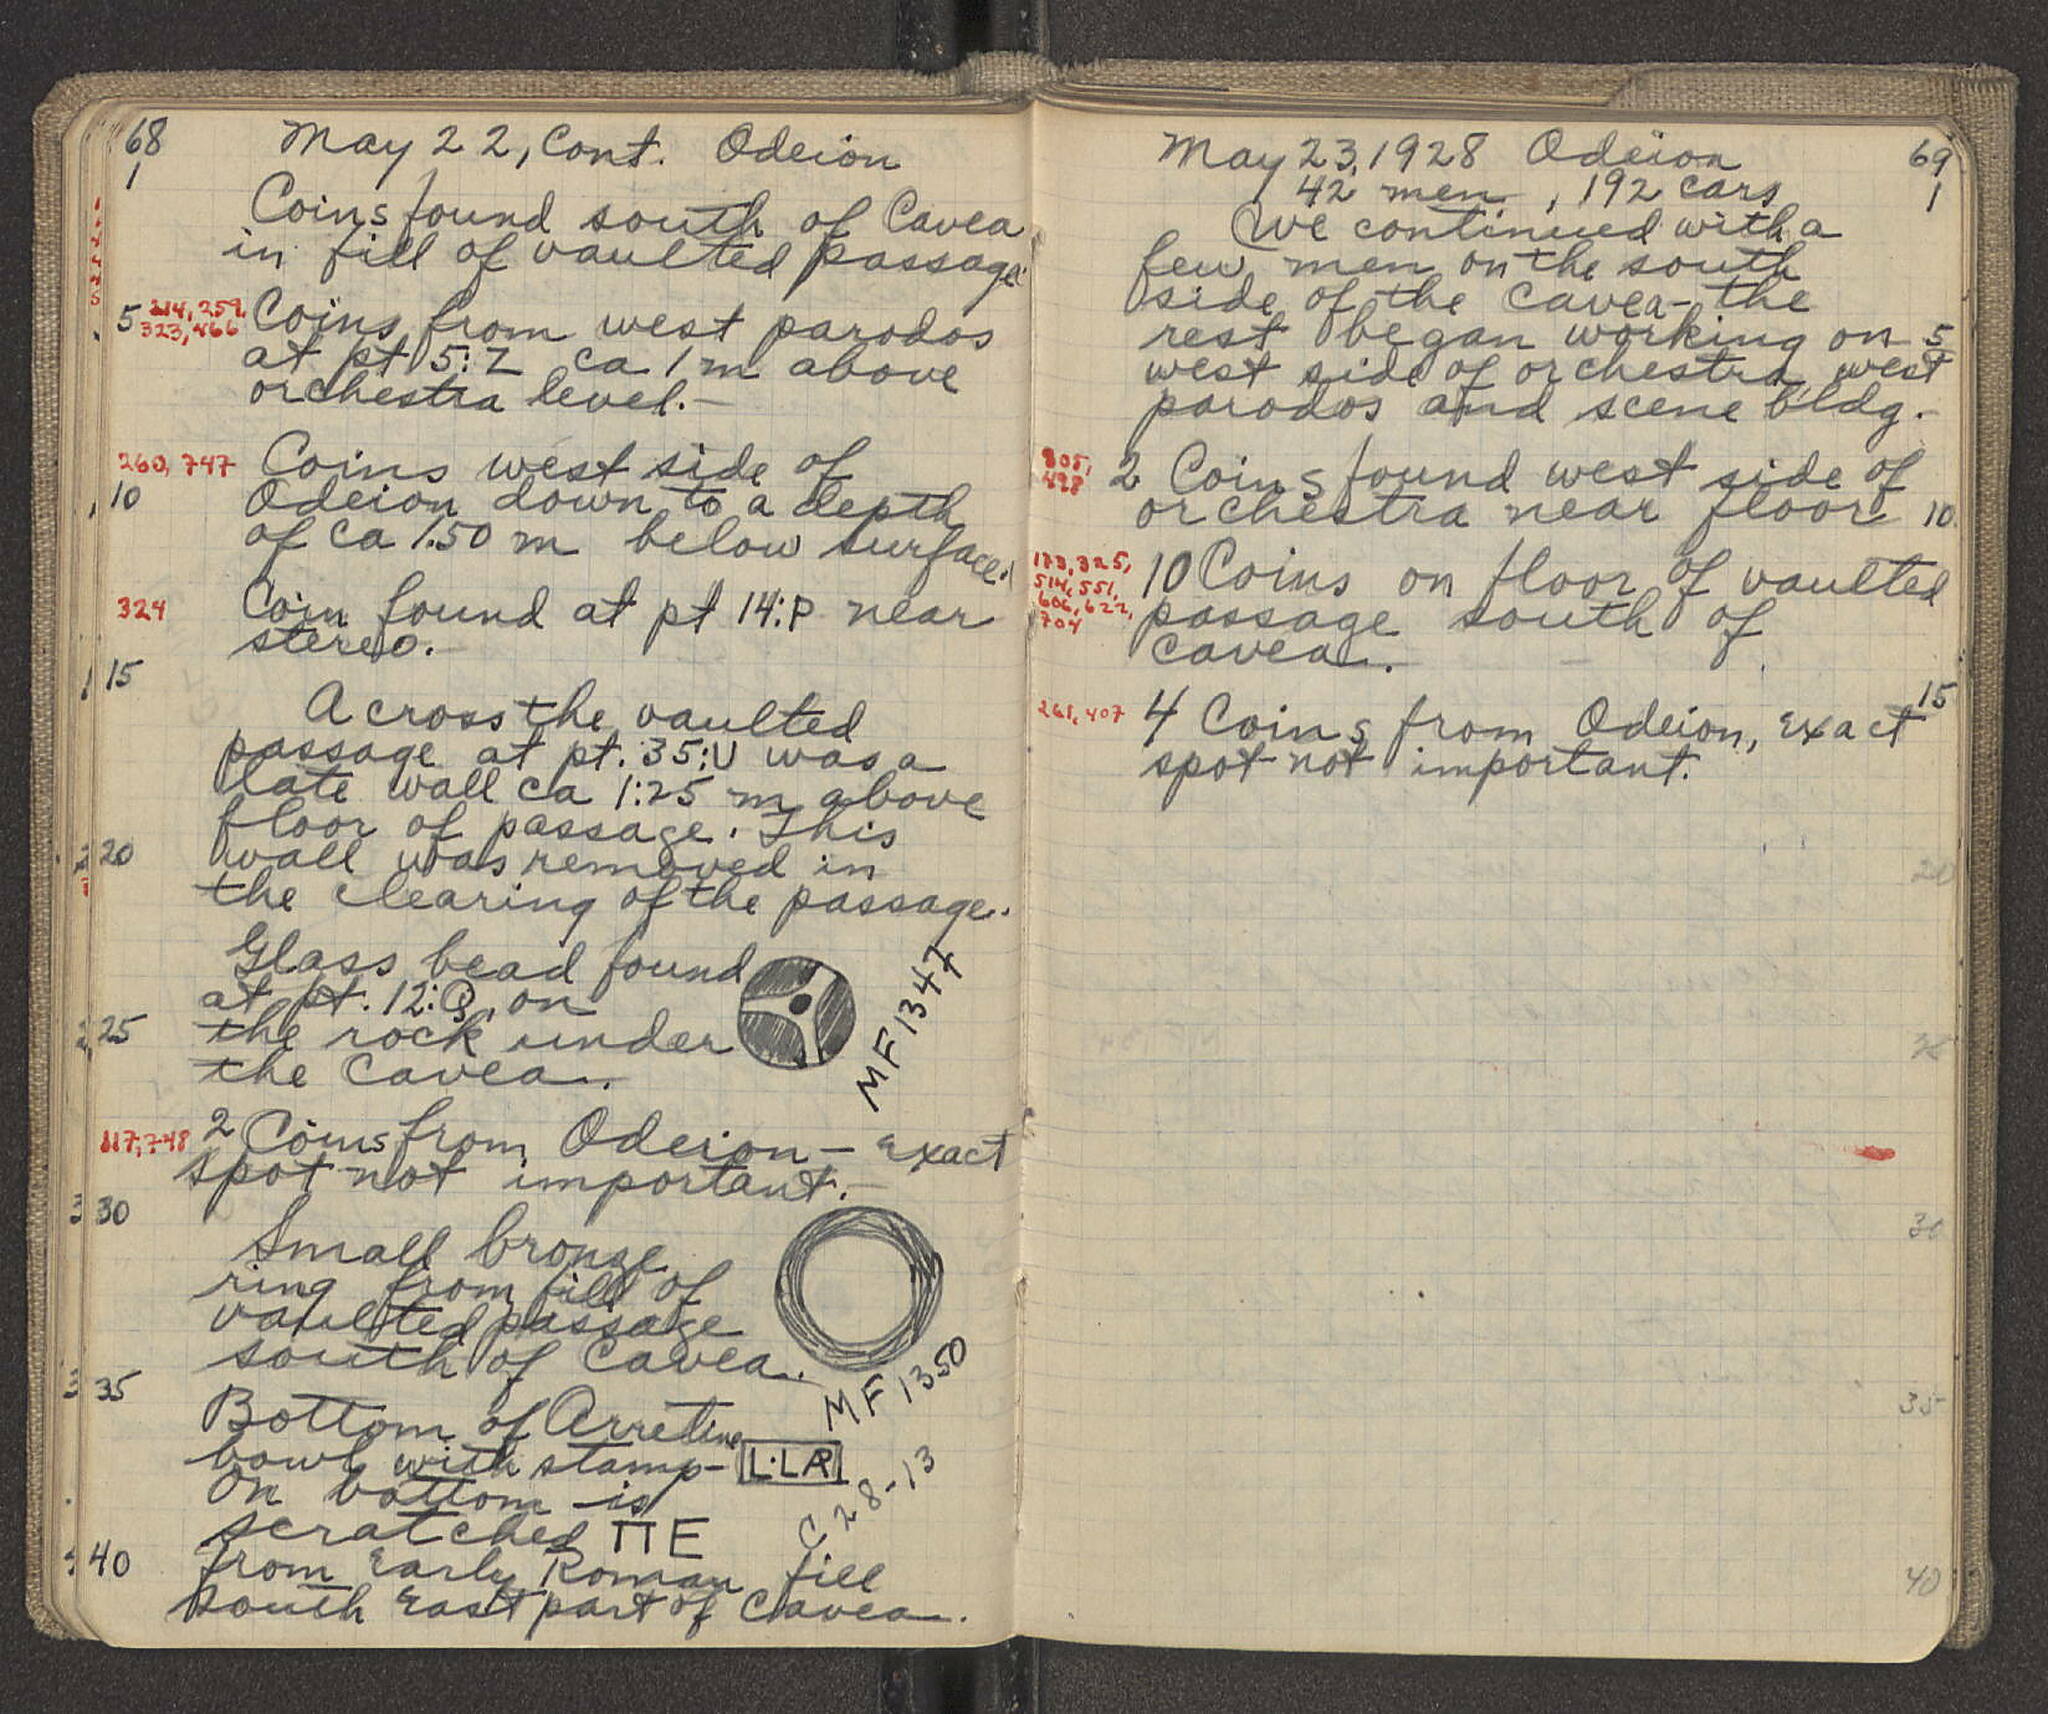 68 May 22, Cont. Odeion
1
Coins found south of Cavea
in fill of vaulted passage.
5 214, 259, Coins from west parodos
323, 466
at pt 5:Z ca 1 m above
orchestra level.—
260, 747 Coins west side of
10 Odeion down to a depth
of ca 1.50 m below surface.
324 Coin found at pt 14:P near
stereo.—
15
Across the vaulted
passage at pt. 35:U was a
late wall ca 1:25 m above
floor of passage. This
20 wall was removed in
the clearing of the passage.
Glass bead found
at pt. 12:Q, on
25 the rock under
the Cavea.
MF 1347
117, 748 2 Coins from Odeion — exact
spot not important.—
30
Small bronze
ring from fill of
vaulted passage
south of Cavea.
MF 1350
35
Bottom of Arretine
bowl with stamp- L·LR
On bottom is
scratched ΠΕ
C 28-13
40 from Early Roman fill
south East part of Cavea.
May 23, 1928 Odeion 69
42 men, 192 cars 1
We continued with a
few men on the south
side of the cavea - the
rest began working on 5
west side of orchestra, west
parodos and scene bldg.
805,
498 2 Coins found west side of
orchestra near floor 10
325, 10 Coins on floor of vaulted
514, 551,
606, 622, passage south of
704
cavea.
15
261, 407 4 Coins from Odeion, exact
spot not important.
20
30
35
40